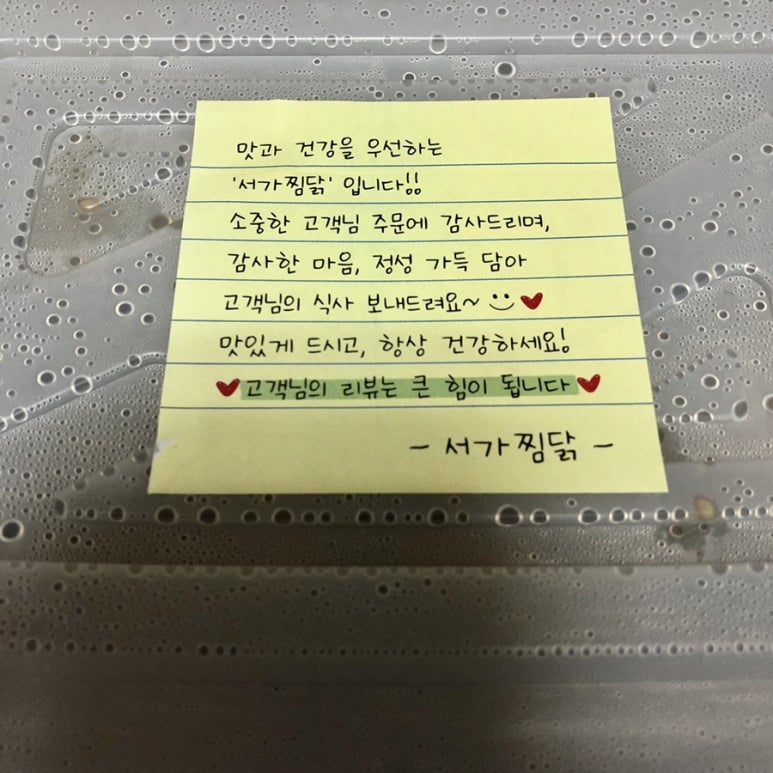 맛과 건강을 우선하는
'서가찜닭' 입니다!!
소중한 고객님 주문에 감사드리며,
감사한 마음, 정성 가득 담아
고객님의 식사 보내드려요~
맛있게 드시고, 항상 건강하세요!
고객님의 리뷰는 큰 힘이 됩니다
- 서가찜닭 -